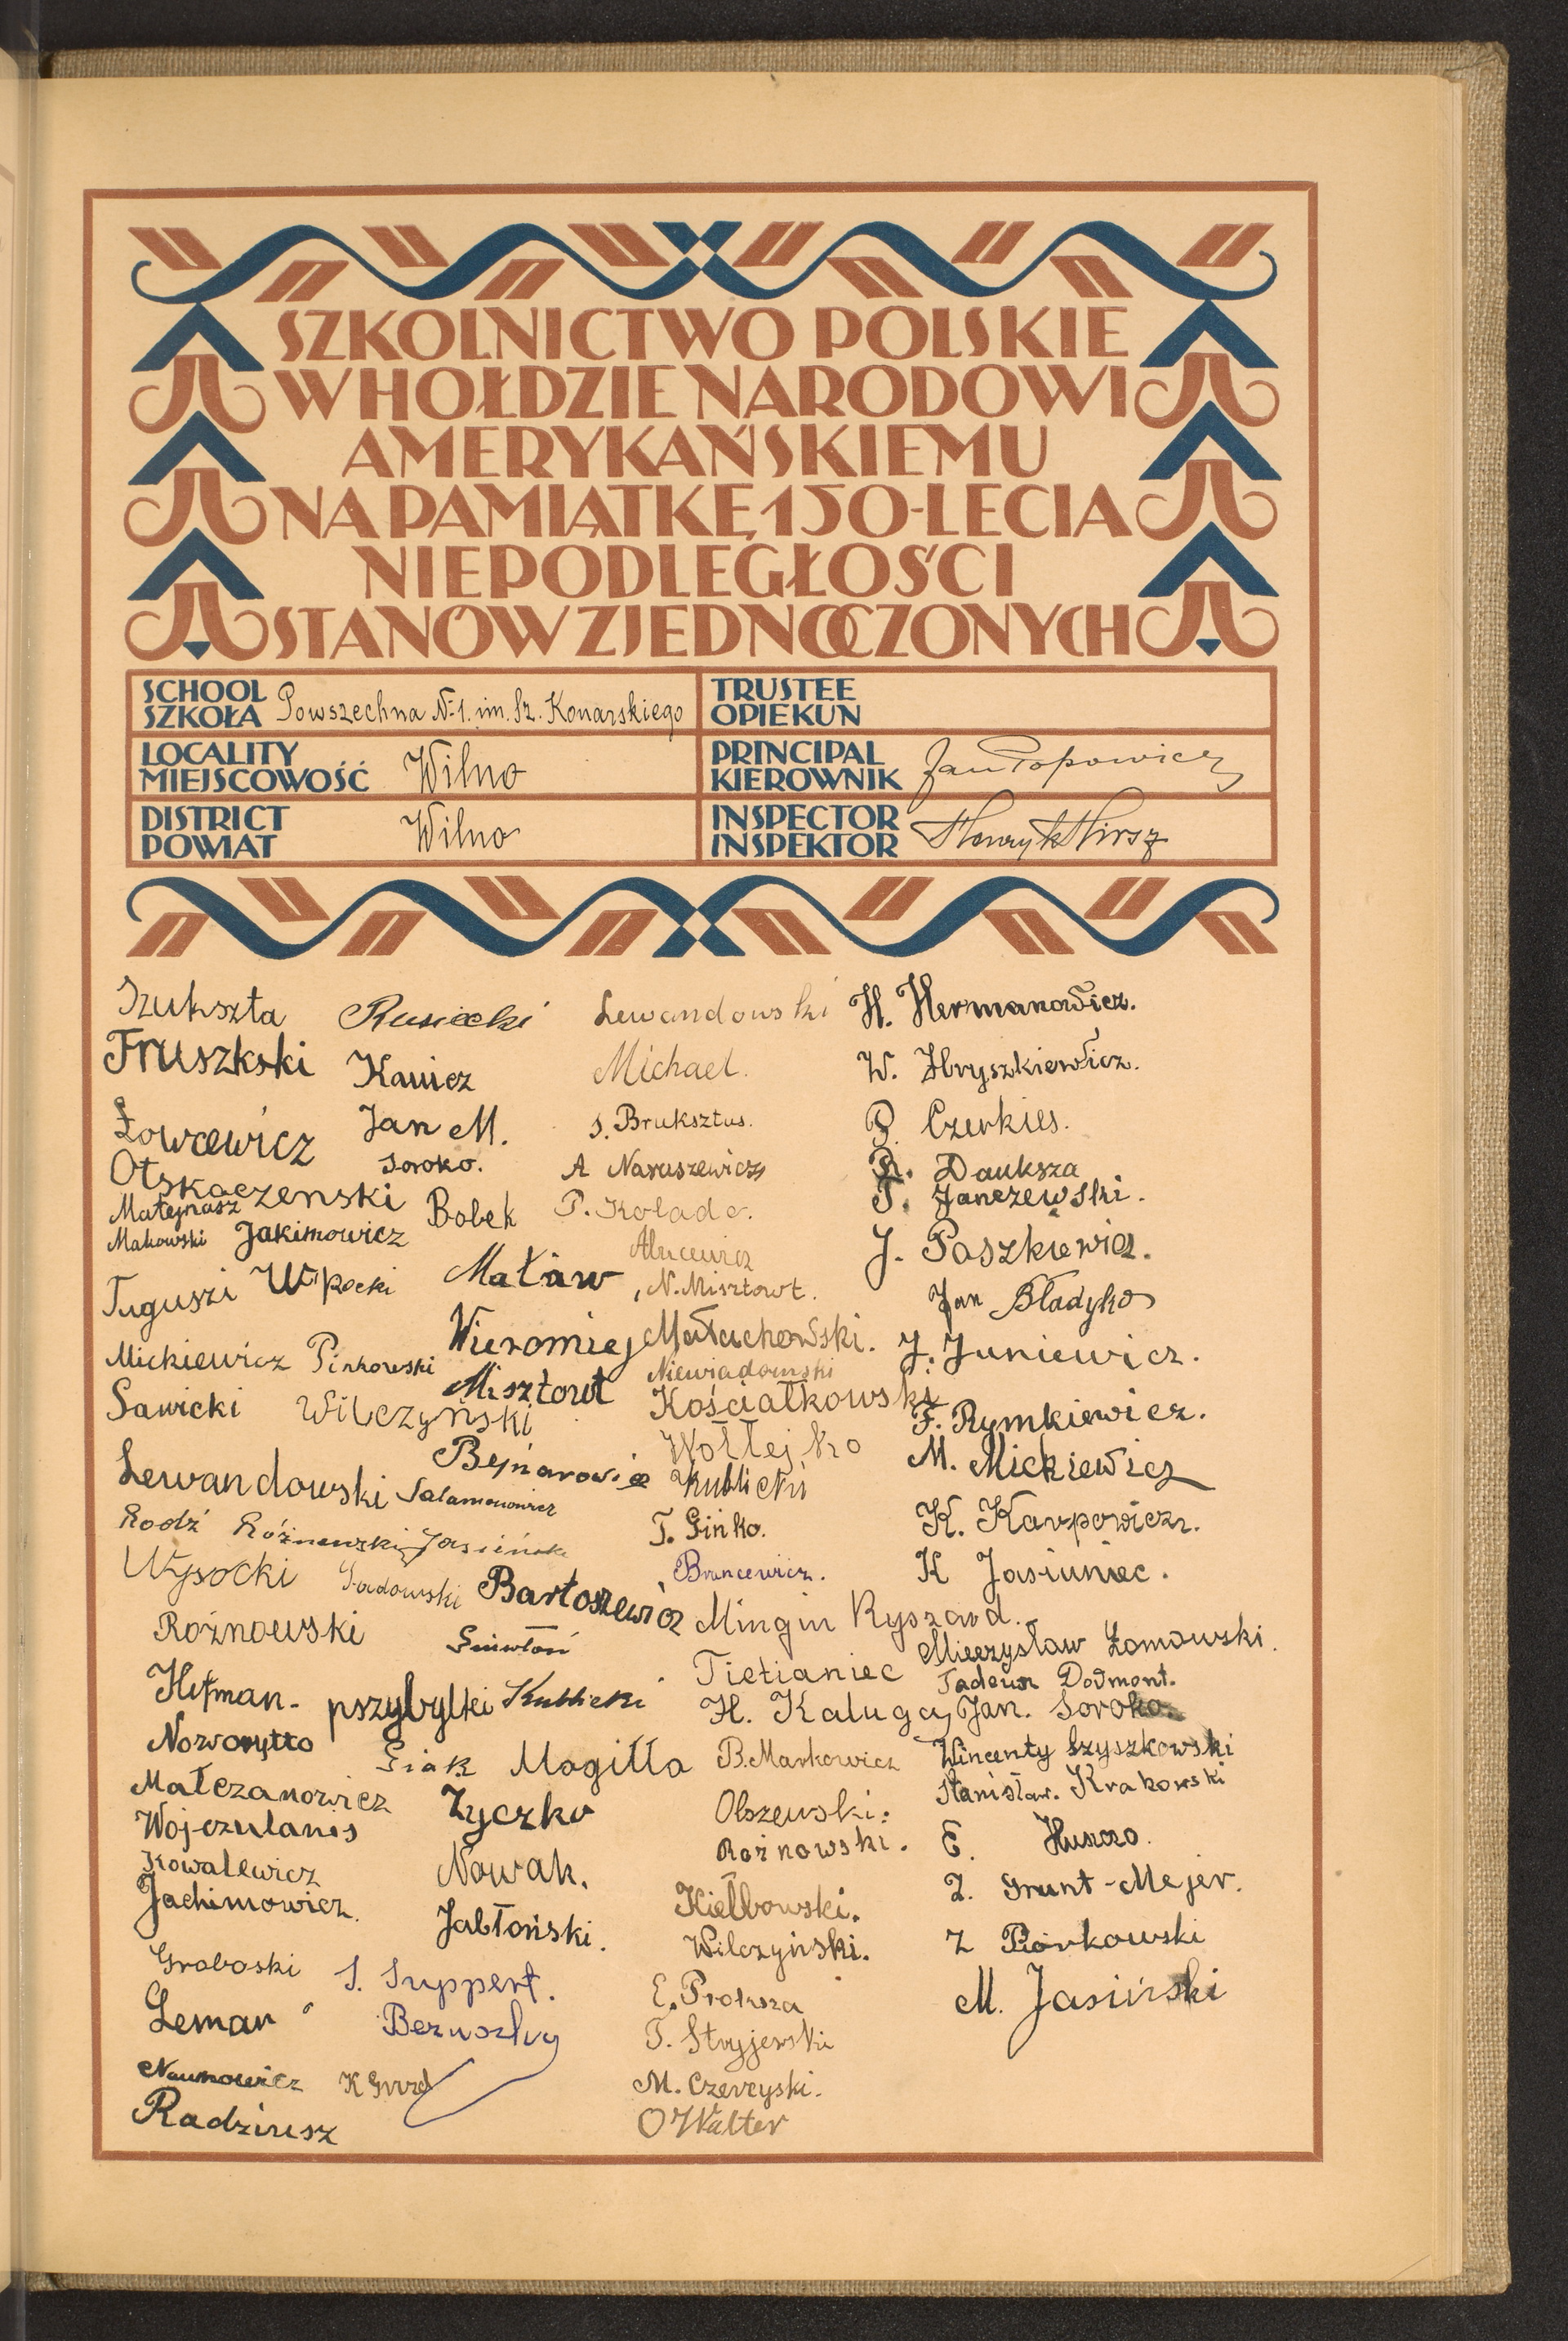 SZKOLNICTWO POLSKIE
W HOŁDZIE NARODOWI
AMERYKAŃSKIEMU
NA PAMIĄTKĘ 150-LECIA
NIEPODLEGŁOŚCI
STANÓW ZJEDNOCZONYCH
SCHOOL
SZKOŁA Powszechna N-1. im. Sz. Konarskiego
TRUSTEE
OPIEKUN
LOCALITY
MIEJSCOWOŚĆ Wilno
PRINCIPAL
KIEROWNIK Jan Popowicz
DISTRICT
POWIAT Wilno
INSPECTOR
INSPEKTOR Henryk Hirsz
Szukszta
Fruszkski
Łowcewicz
Otskoczenski
Matejnasz
Makowski Jakimowicz
Tuguszi
Mickiewicz Piotrowski
Sawicki Wilczyński
Lewandowski Salamonowicz
Rodź Różnowski Jasiński
Wysocki Sadowski Bartoszewicz
Rożnowski
Hofman- pszybylki Kublicki
Noworytto
Siak Mogiłło
Małczanowicz
Wojczulanis
Kowalewicz
Jachimowicz.
Groboski
Leman
Naumowicz
Radziusz
Rusiecki
Kanicz
Jan M.
Soroko.
Bobek
Mataw
Wieromiej
Misztowt
Bejnarowicz
Zyczko
Nowak.
Jabłoński.
S. Suppert.
Lewandowski
Michael.
S. Bruksztus.
A Naruszewicz
P. Kolada.
N. Misztowt.
Małachowski.
Niewiadomski
Kościałkowski
Wołłejko
Kublicki
T. Ginko.
Brancewicz.
Mingin Ryszard.
Tietianiec
H. Kaluga
B. Markowicz
Olszewski.
Rożnowski.
Kiełbowski.
Wilczyński.
E. Proksza
T. Stryjewski
M. Czerejski.
O Walter
H. Hermanowicz.
W. Hryszkiewicz.
P. Czerkies.
R. Dauksza
T. Janczewski.
J. Paszkiewicz.
Jan Bładyko
J. Juniewicz.
F. Rymkiewicz.
M. Mickiewicz
K. Karpowicz.
K Jasiuniec.
Mieczysław Łomowski.
Tadeusz Dowmont.
Jan. Soroko.
Wincenty Szyszkowski
Stanisław. Krakowski
E. Huszczo.
Z. Grunt-Mejer.
Z Piórkowski
M. Jasiński